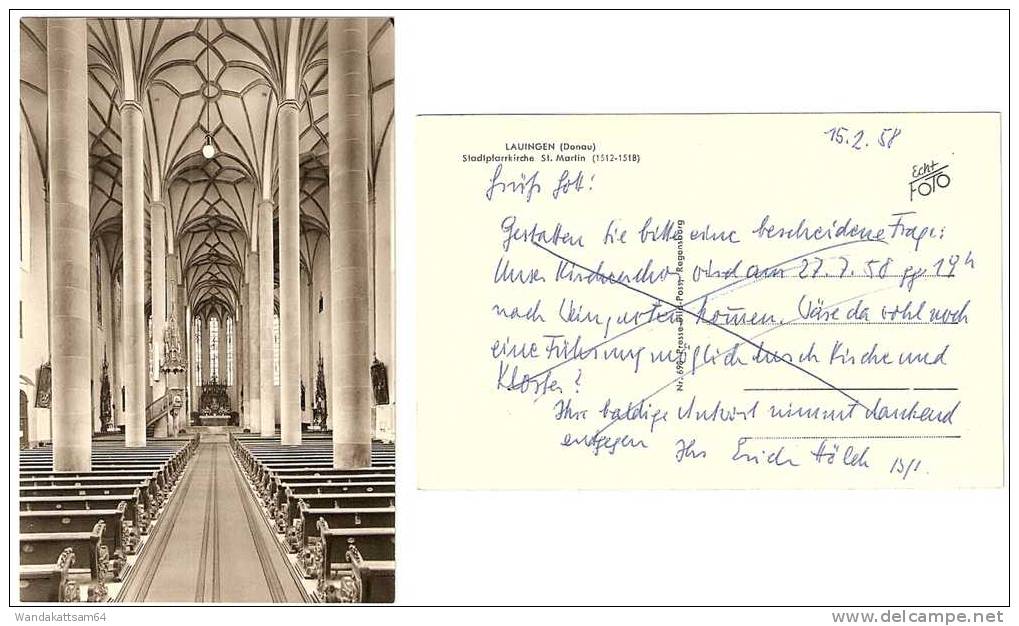 LAUINGEN (Donau)
Stadtpfarrkirche St. Martin (1512-1518)
15.2.58
Echt
FOTO
Grüß Gott!
Gestatten Sie bitte eine bescheidene Frage:
Unser Kirchenchor wird am 27.7.58 gg 17h
nach Weingarten kommen. Wäre da wohl noch
eine Führung möglich durch Kirche und
Kloster?
Ihre baldige Antwort nimmt dankend
entgegen Ihr Erich Hölch
Nr. 698 Presse-Bild-Poss, Regensburg
Wandakattsam64
www.delcampe.net